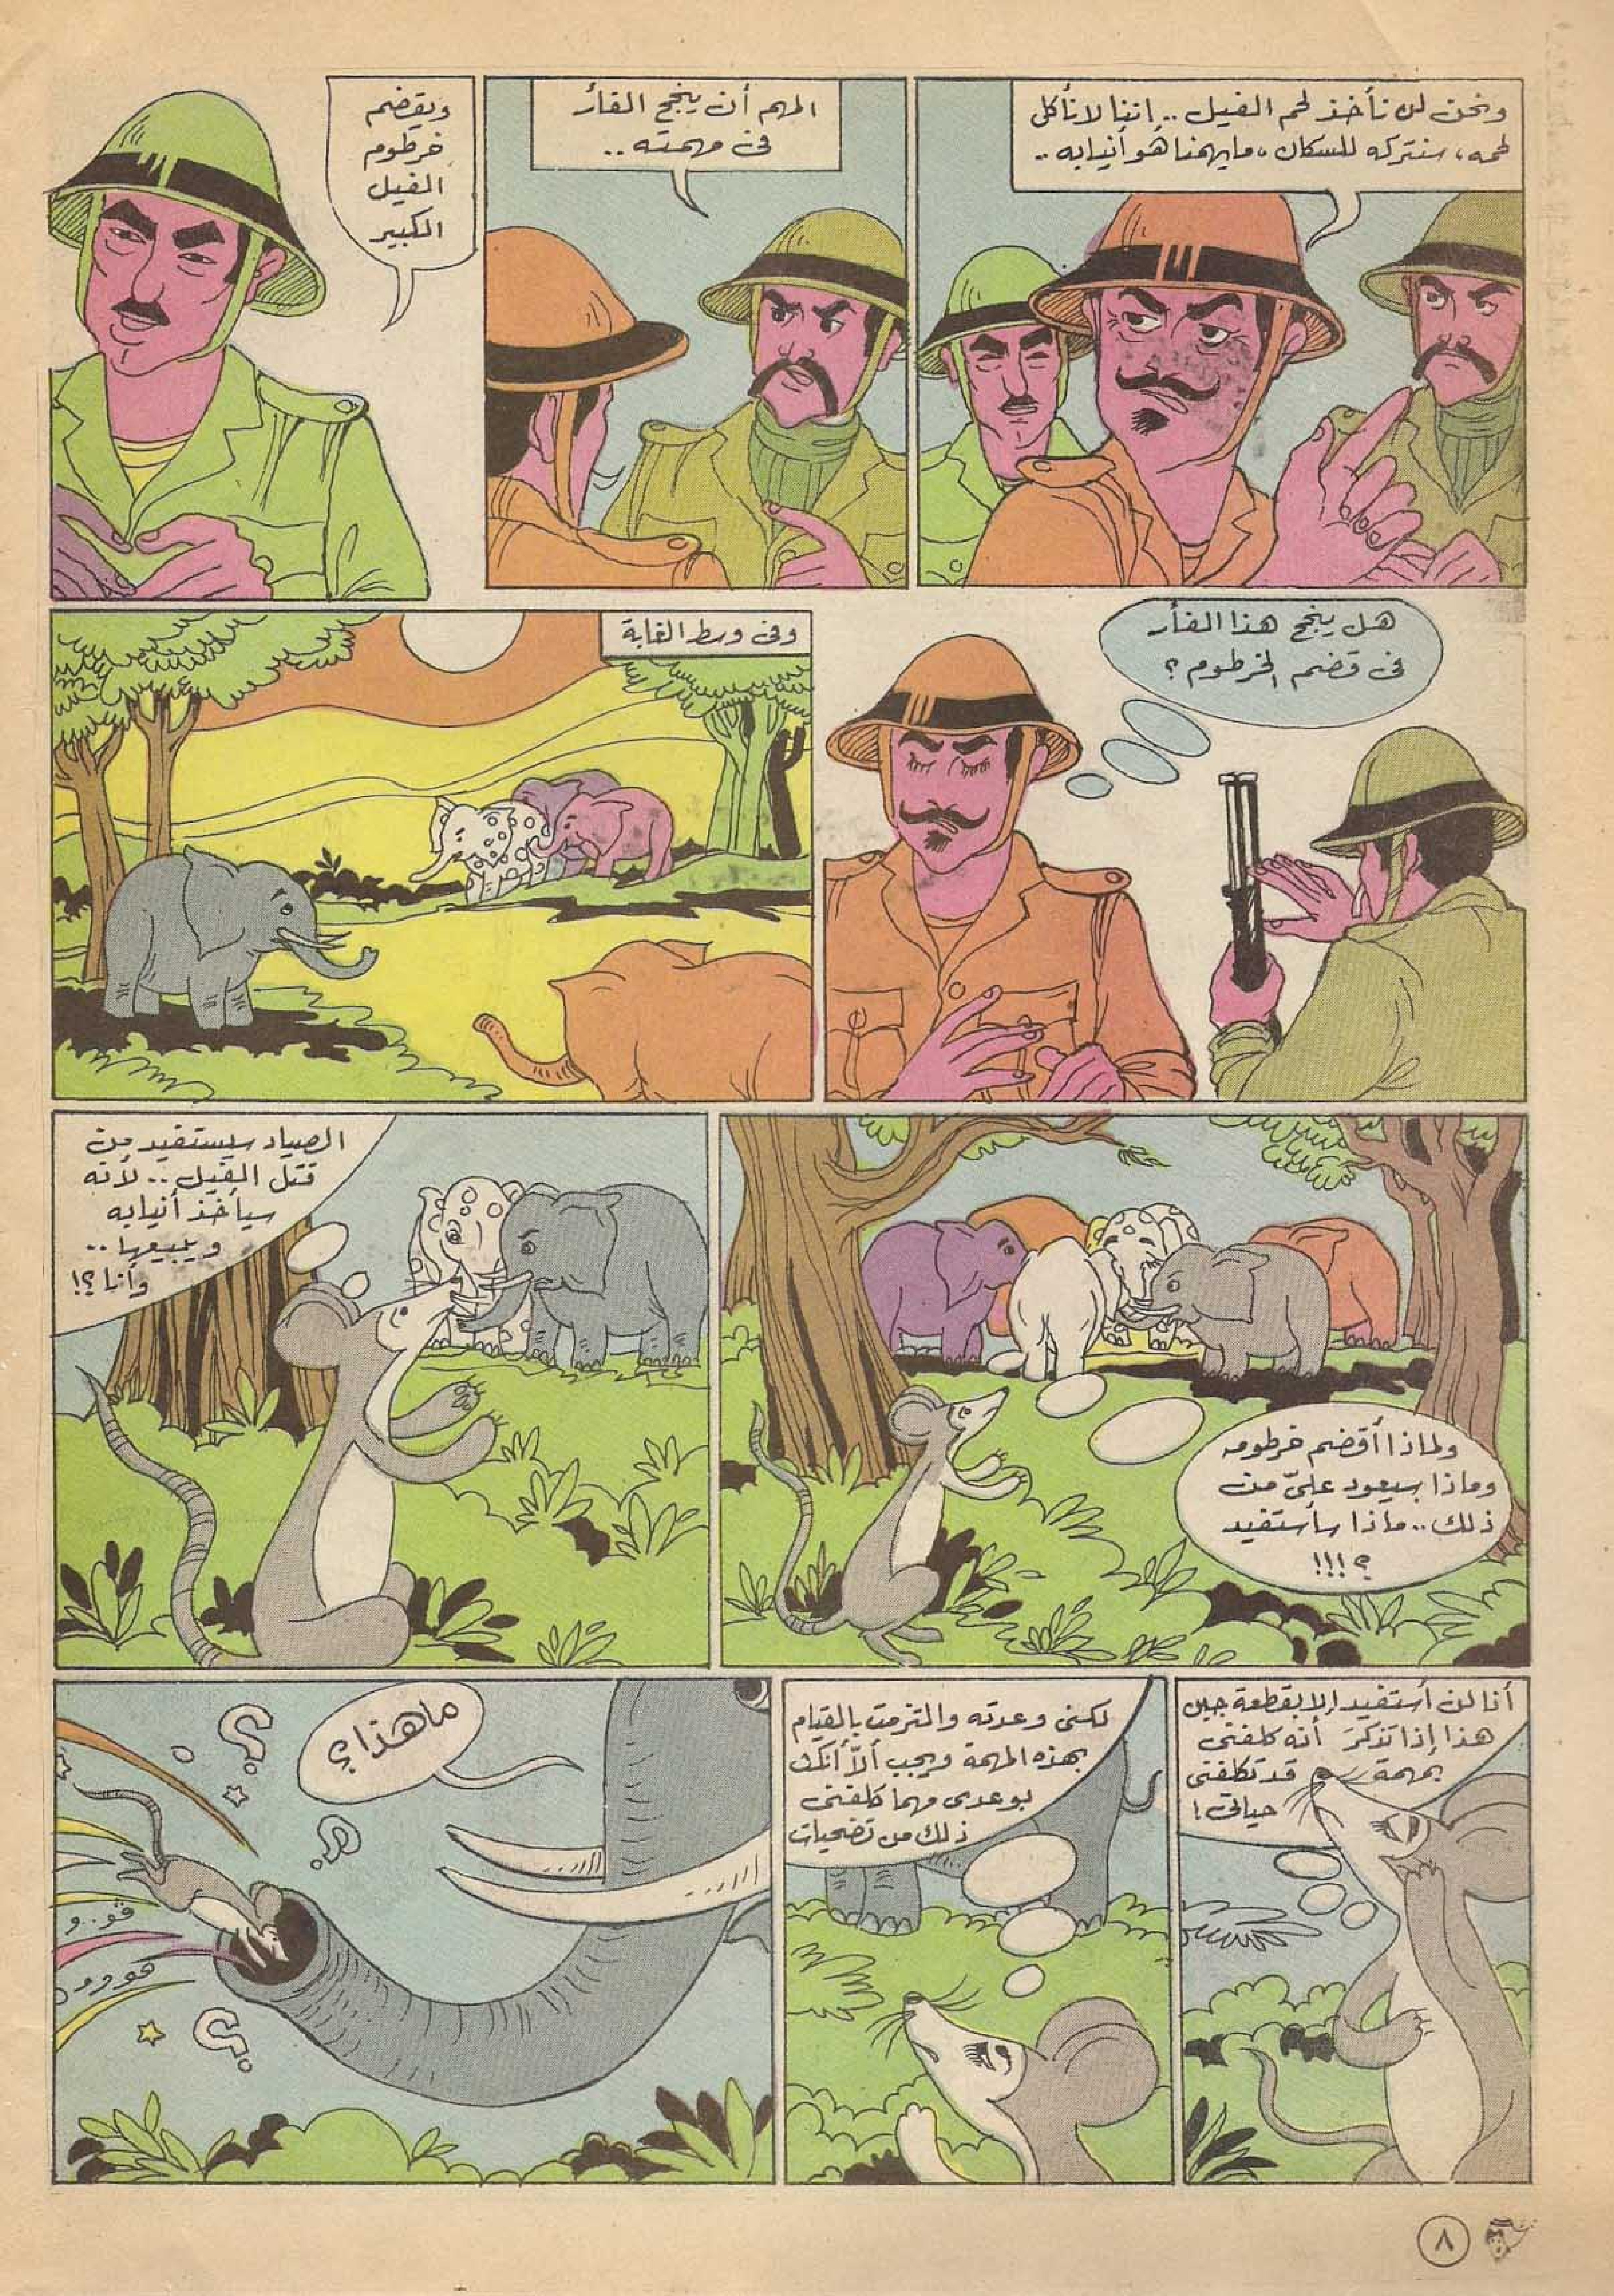 ونحن لن نأخذ لحم الفيل .. إننا لا نأكل
لحمه، سنتركه للسكان، ما يهمنا هو أنيابه ..
المهم أن ينجح الفأر
فى مهمته ..
ويقضم
خرطوم
الفيل
الكبير
هل ينجح هذا الفأر
فى قضم الخرطوم ؟
وفى وسط الغابة
ولماذا أقضم خرطومه
وماذا سيعود علىّ من
ذلك .. ماذا سأستفيد
؟ !!!
الصياد سيستفيد من
قتل الفيل .. لأنه
سيأخذ أنيابه
ويبيعها ..
وأنا ؟!
أنا لن أستفيد إلا بقطعة جبن
هذا إذا تذكر أنه كلفنى
بمهمة قد تكلفنى
حياتى !
لكنى وعدته والتزمت بالقيام
بهذه المهمة ويجب ألا أنكث
بوعدى مهما كلفنى
ذلك من تضحيات
ما هذا ؟
؟
؟
ڤو..و
هوووو
؟
٨